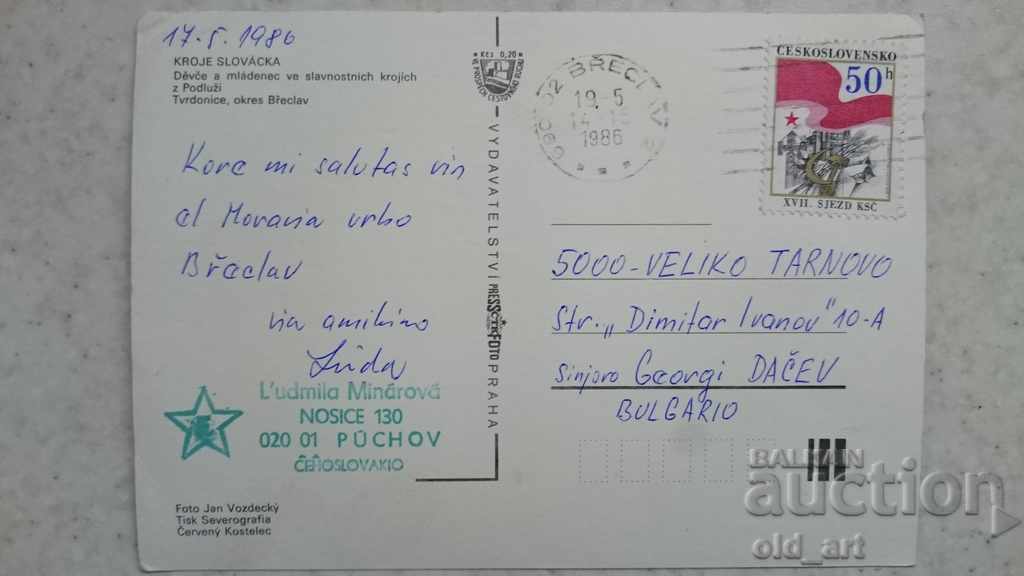 17.5.1986
KROJE SLOVÁCKA
Děvče a mládenec ve slavnostních krojích
z Podluží
Tvrdonice, okres Břeclav
Kore mi salutas vin
el Moravia urbo
Břeclav
via amikino
Lída
L'udmila Minárová
NOSICE 130
020 01 PÚCHOV
ĈEĤOSLOVAKIO
Foto Jan Vozdecký
Tisk Severografia
Červený Kostelec
Kčs 0,20
VYDAVATELSTVÍ PRESSFOTO PRAHA
BŘECLAV 2
19.5
1986
ČESKOSLOVENSKO
50h
XVII. SJEZD KSČ
5000-VELIKO TARNOVO
Str. „Dimitar Ivanov" 10-A
Sinjoro Georgi DAČEV
BULGARIO
BALKAN
auction
old_art